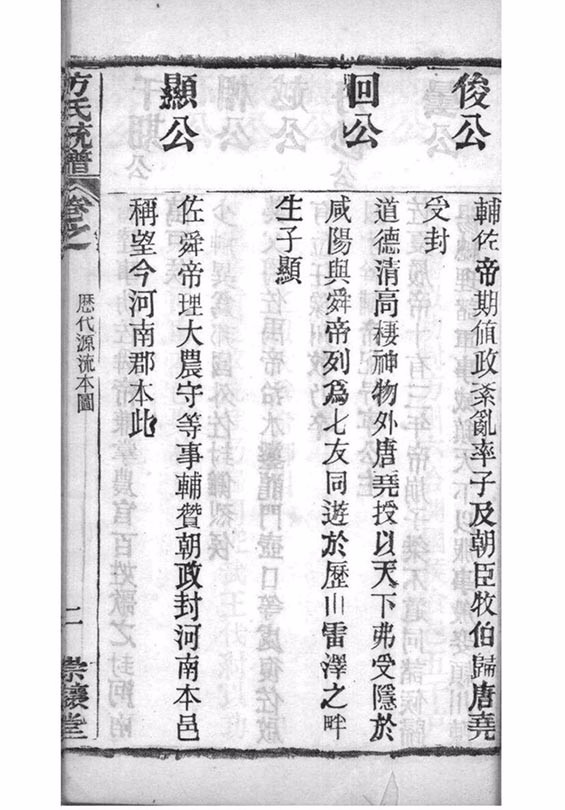 俊公
輔佐帝期值政紊亂率子及朝臣牧伯歸唐堯
受封
回公
道德清高棲神物外唐堯授以天下弗受隱於
咸陽與舜帝列爲七友同遊於歷山雷澤之畔
生子顯
顯公
佐舜帝理大農守等事輔贊朝政封河南本邑
稱望今河南郡本此
方氏統譜
卷之一
歷代源流本圖
二
崇讓堂